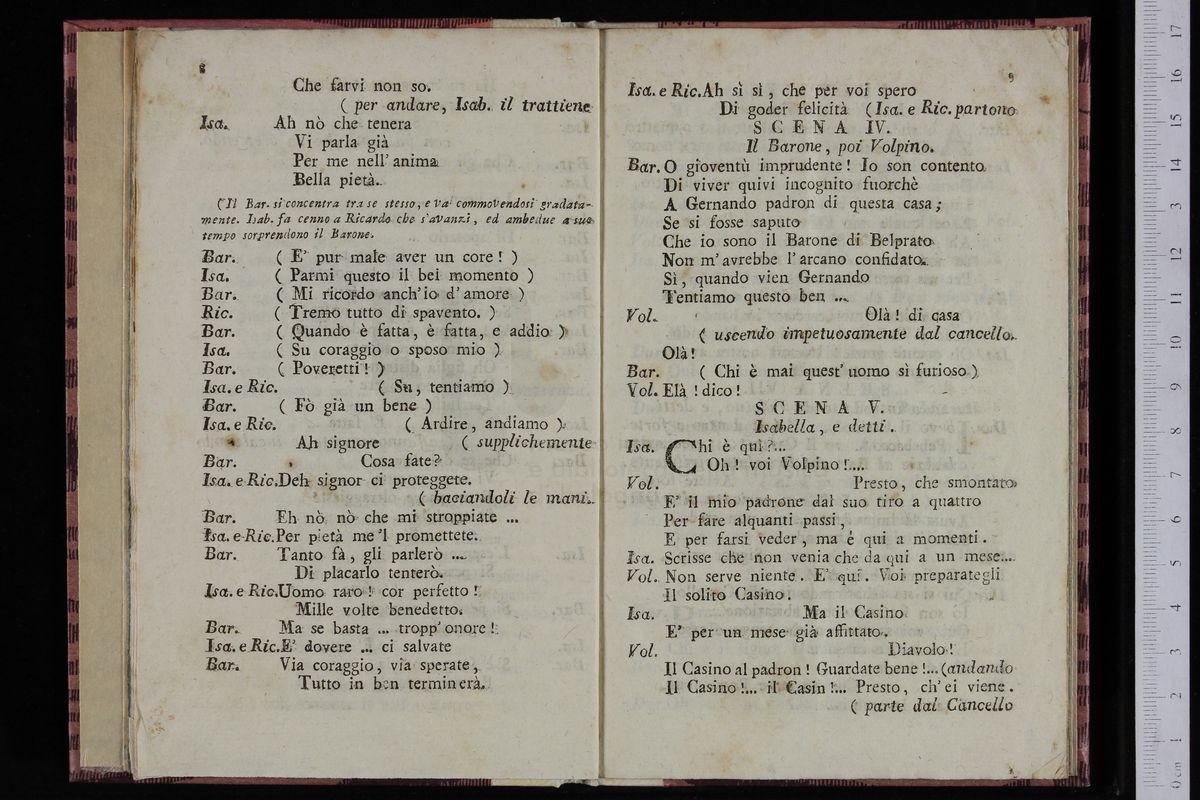 8
Che farvi non so.
( per andare, Isab. il trattiene
Isa. Ah nò che tenera
Vi parla già
Per me nell' anima
Bella pietà.
( Il Bar. si concentra tra se stesso, e va' commovendosi gradata-
mente. Isab. fa cenno a Ricardo che s'avanzi, ed ambedue a suo
tempo sorprendono il Barone.
Bar. ( E' pur male aver un core ! )
Isa. ( Parmi questo il bel momento )
Bar. ( Mi ricordo anch' io d' amore )
Ric. ( Tremo tutto di spavento. )
Bar. ( Quando è fatta, è fatta, e addio )
Isa. ( Su coraggio o sposo mio )
Bar. ( Poveretti ! )
Isa. e Ric. ( Su, tentiamo )
Bar. ( Fò già un bene )
Isa. e Ric. ( Ardire, andiamo )
Ah signore ( supplichemente
Bar. Cosa fate?
Isa. e Ric. Deh signor ci proteggete.
( baciandoli le mani.
Bar. Eh nò nò che mi stroppiate ...
Isa. e Ric. Per pietà me 'l promettete.
Bar. Tanto fà, gli parlerò ...
Di placarlo tenterò.
Isa. e Ric. Uomo raro ! cor perfetto !
Mille volte benedetto.
Bar. Ma se basta ... tropp' onore !
Isa. e Ric. E' dovere ... ci salvate
Bar. Via coraggio, via sperate,
Tutto in ben terminerà.
9
Isa. e Ric. Ah sì sì, che per voi spero
Di goder felicità ( Isa. e Ric. partono
SCENA IV.
Il Barone, poi Volpino.
Bar. O gioventù imprudente ! Io son contento
Di viver quivi incognito fuorchè
A Gernando padron di questa casa;
Se si fosse saputo
Che io sono il Barone di Belprato
Non m' avrebbe l' arcano confidato.
Sì, quando vien Gernando
Tentiamo questo ben ...
Vol. Olà ! di casa
( uscendo impetuosamente dal cancello.
Olà !
Bar. ( Chi è mai quest' uomo sì furioso )
Vol. Elà ! dico !
SCENA V.
Isabella, e detti.
Isa. Chi è quì ?...
Oh ! voi Volpino !....
Vol. Presto, che smontato
E' il mio padrone dal suo tiro a quattro
Per fare alquanti passi,
E per farsi veder, ma é qui a momenti.
Isa. Scrisse che non venia che da qui a un mese....
Vol. Non serve niente. E' quì. Voi preparategli
Il solito Casino.
Isa. Ma il Casino
E' per un mese già affittato.
Vol. Diavolo !
Il Casino al padron ! Guardate bene !... (andando
Il Casino !.... il Casin !... Presto, ch' ei viene.
( parte dal Cancello